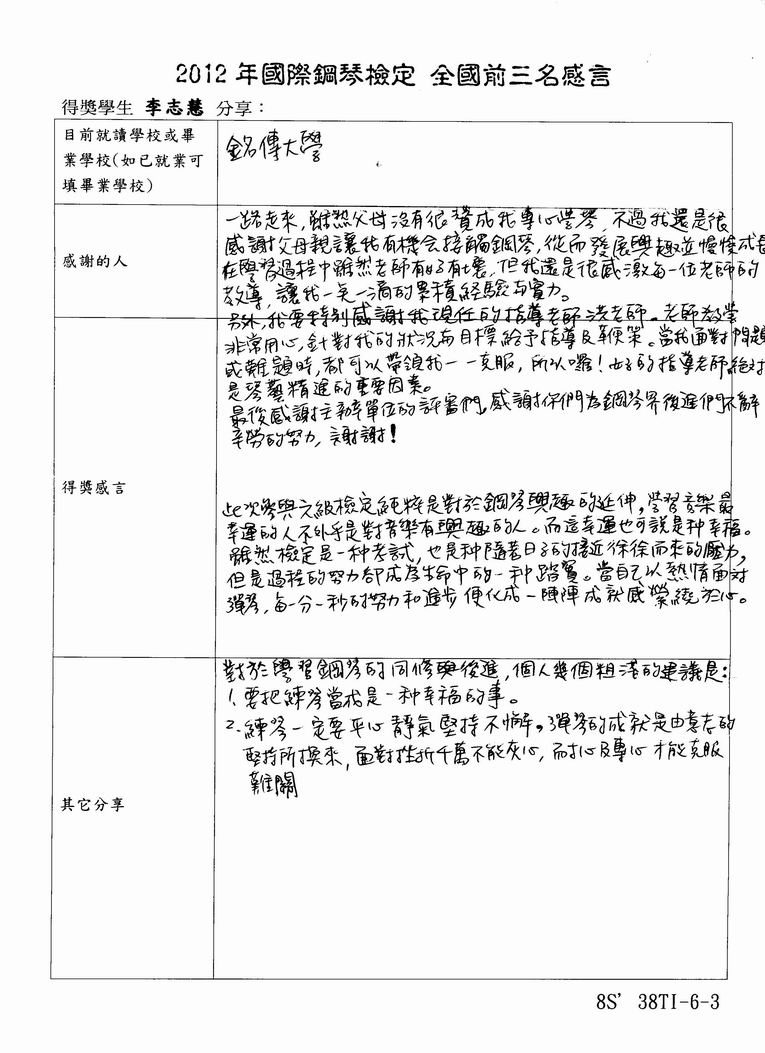 2012 年國際鋼琴檢定 全國前三名感言
得獎學生 李志慧 分享：
目前就讀學校或畢
業學校(如已就業可
填畢業學校)
銘傳大學
感謝的人
一路走來，雖然父母沒有很贊成我專心學琴，不過我還是很
感謝父母親讓我有機會接觸鋼琴，從而發展興趣並慢慢成長
在學習過程中雖然老師有好有壞，但我還是很感激每一位老師的
教導，讓我一點一滴的累積經驗與實力。
另外，我要特別感謝我現任的指導老師洪老師。老師教學
非常用心，針對我的狀況與目標給予指導及鞭策。當我面對問題
或難題時，都可以帶領我一一克服，所以囉！好的指導老師絕對
是琴藝精進的重要因素。
最後感謝主辦單位的評審們，感謝你們為鋼琴界後進們不辭
辛勞的努力，謝謝！
得獎感言
此次參與六級檢定純粹是對於鋼琴興趣的延伸，學習音樂最
幸運的人不外乎是對音樂有興趣的人。而這幸運也可說是种幸福。
雖然檢定是一种考試，也是种隨著日子的接近徐徐而來的壓力，
但是過程的努力卻成為生命中的一种踏實。當自己以熱情面對
彈琴，每一分一秒的努力和進步便化成一陣陣成就感縈繞於心。
其它分享
對於學習鋼琴的同修與後進，個人幾個粗淺的建議是：
1. 要把練琴當成是一种幸福的事。
2. 練琴一定要平心靜氣堅持不懈。彈琴的成就是由意志的
堅持所換來，面對挫折千萬不能灰心，而耐心及專心才能克服
難關
8S' 38TI-6-3